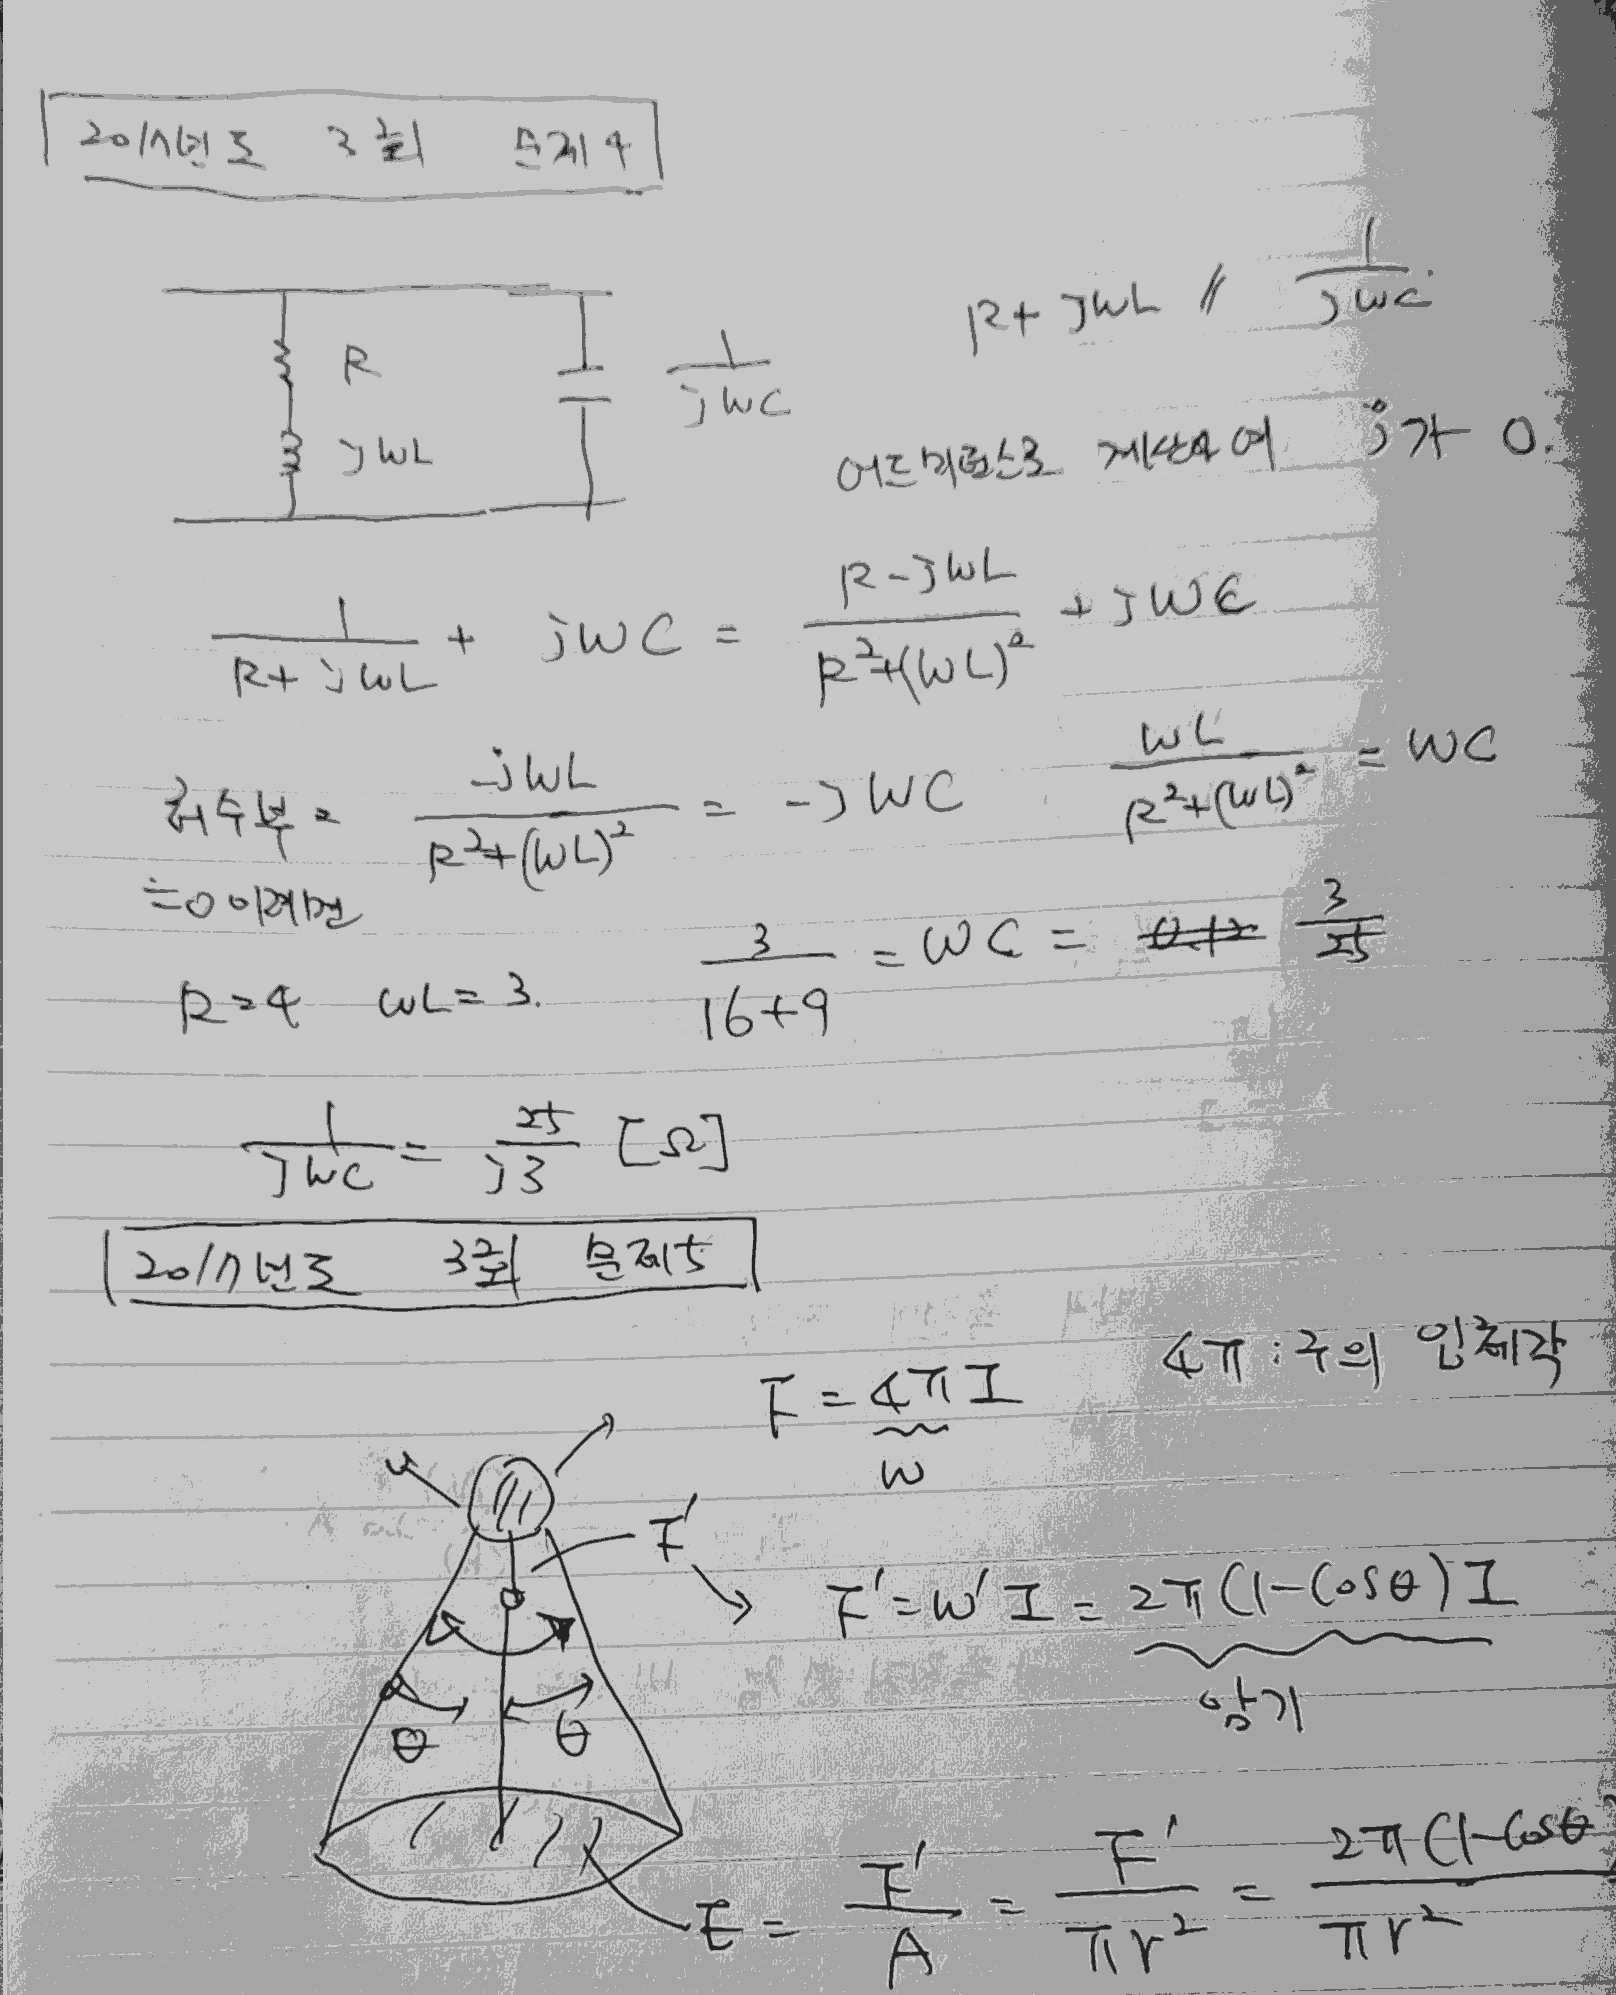 2017년도 3회 문제4
R+jWL // 1/jWC
R
jWL
1/jWC
어드미턴스로 계산하여 j가 0.
1/(R+jWL) + jWC = (R-jWL)/(R²+(WL)²) + jWC
허수부 = -jWL/(R²+(WL)²) = -jWC WL/(R²+(WL)²) = WC
=0 이려면
R=4 WL=3. 3/(16+9) = WC = 3/25
1/jWC = 25/j3 [Ω]
2017년도 3회 문제5
F = 4πI 4π : 구의 입체각
W
F'
F' = W'I = 2π(1-Cosθ)I
암기
θ θ
E = F'/A = F'/πr² = 2π(1-Cosθ)/πr²